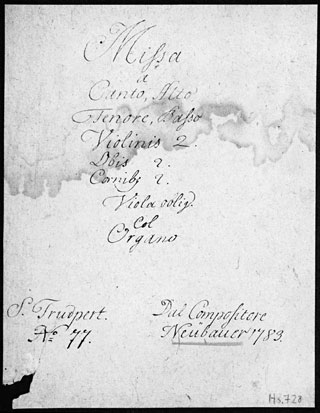 Missa
a
Canto, Alto
Tenore, Basso
Violinis 2.
Obis 2.
Cornib9 2.
Viola oblig.
Col
Organo
S. Trudpert.
No 77.
Dal Compositore
Neubauer 1783.
Hs. 728